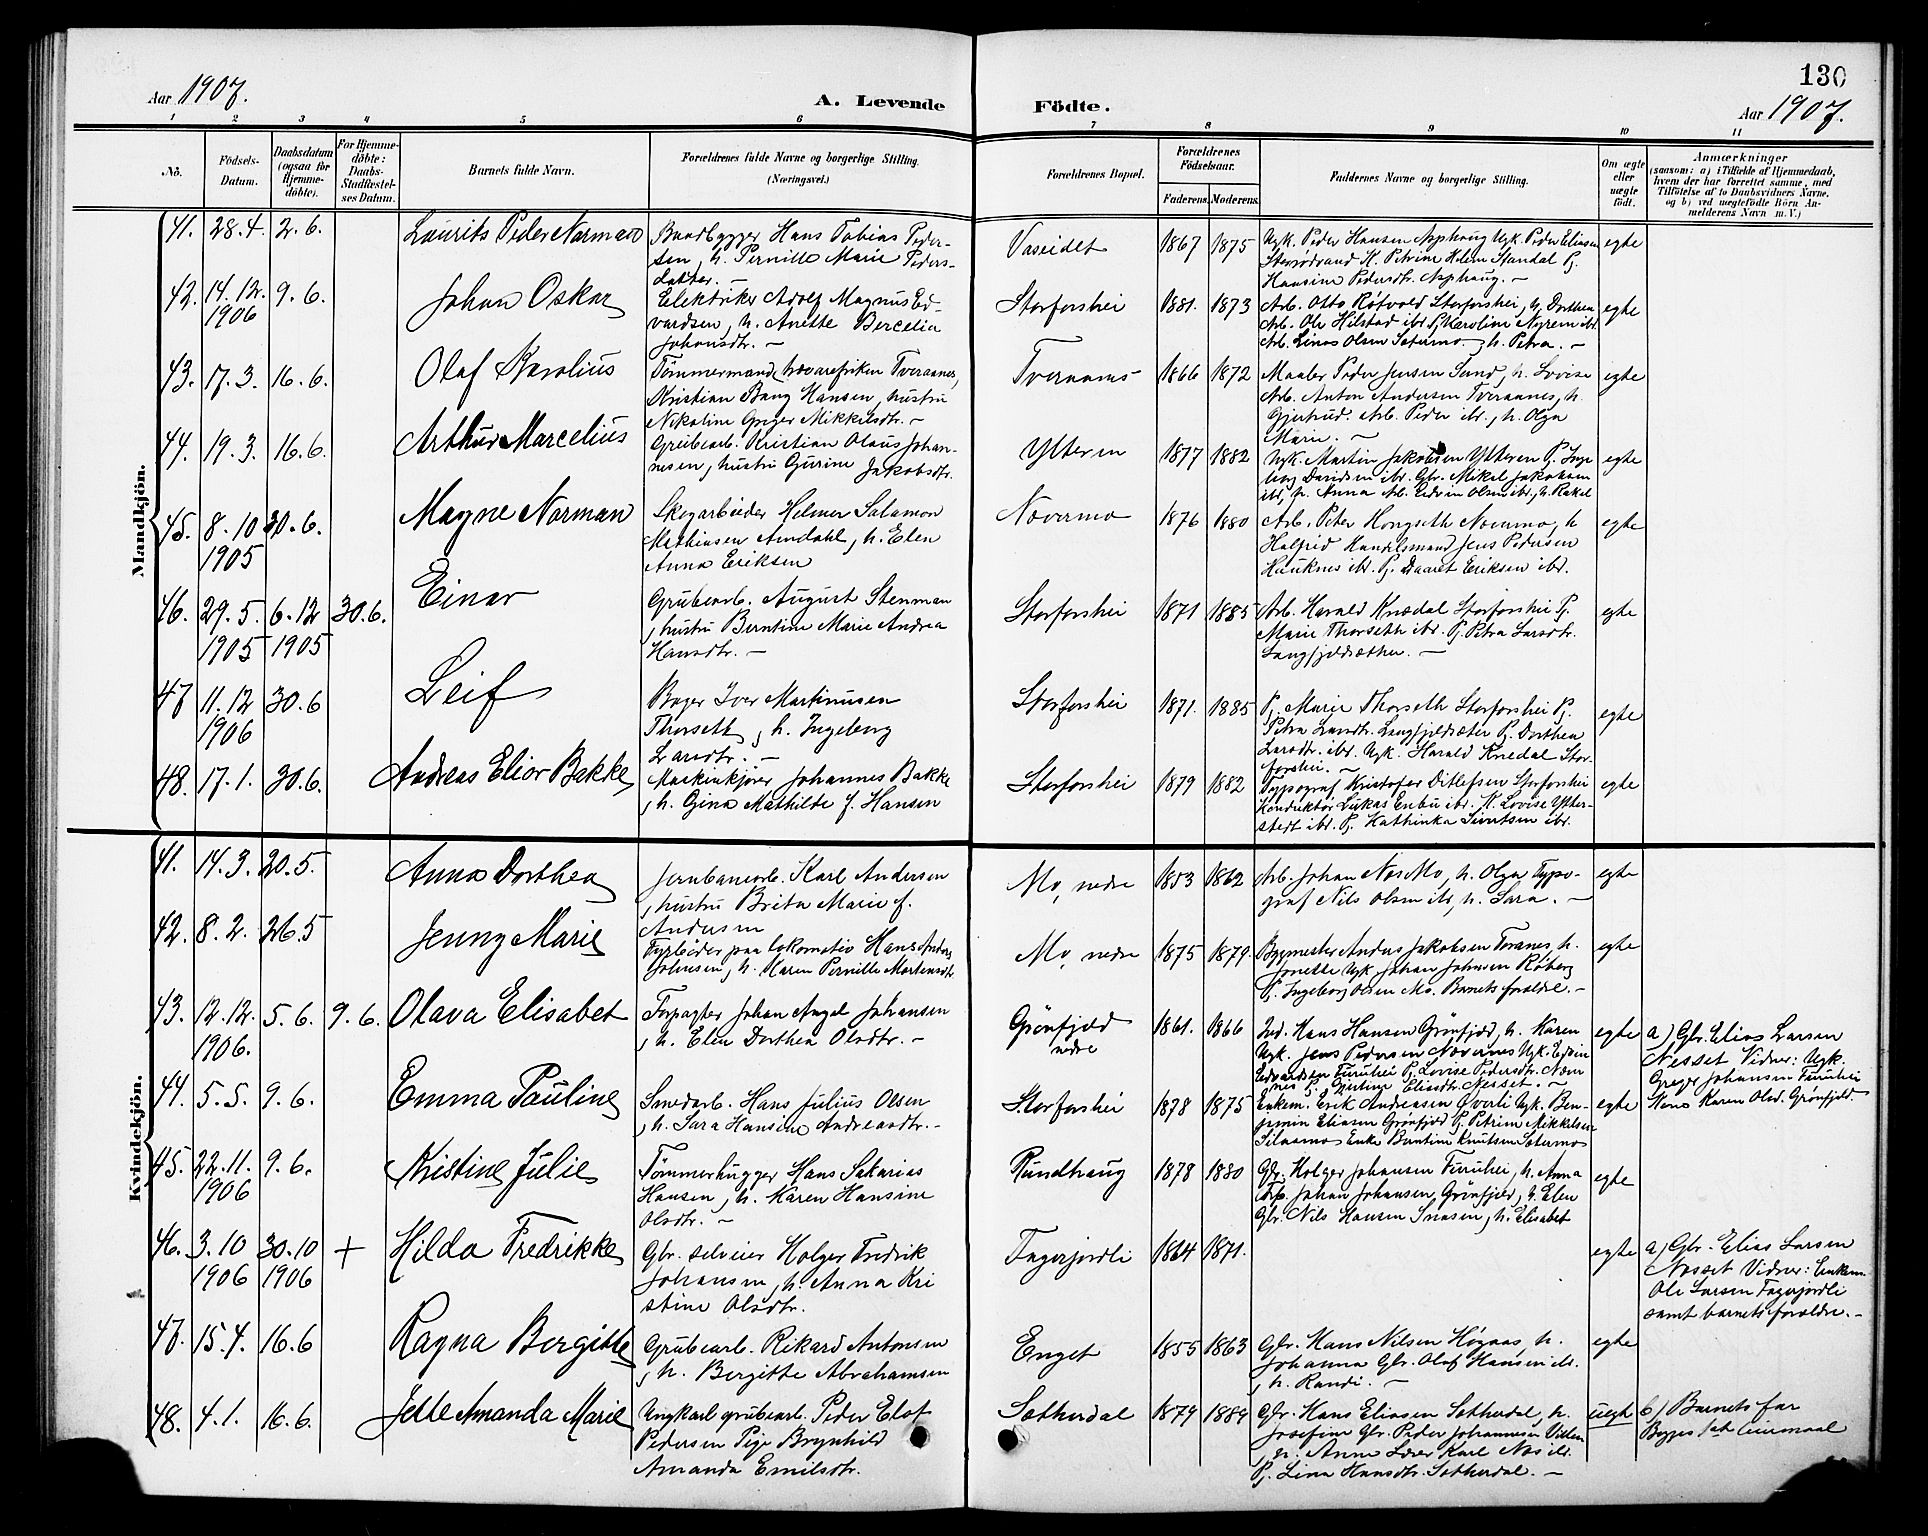 130
Aar 1907.
A. Levende
Födte.
Aar 1907.
1 2 3 4 5 6 7 8 9 10 11
No.
Födsels-
Datum.
Daabsdatum
(ogsaa for
Hjemme-
döbte).
For Hjemme-
döbte:
Daabs-
Stadfæstel-
ses Datum.
Barnets fulde Navn.
Forældrenes fulde Navne og borgerlige Stilling.
(Næringsvei.)
Forældrenes Bopæl.
Forældrenes
Födselsaar.
Faderens. Moderens.
Faddernes Navne og borgerlige Stilling.
Om ægte
eller
uægte
födt.
Anmærkninger
(saasom: a) i Tilfælde af Hjemmedaab,
hvem der har forrettet samme, med
Tilföielse af to Daabsvidners Navne,
og b) ved uegtefödte Börn An-
melderens Navn m. V.)
Mandkjön.
41. 28.4. 2.6. Laurits Peder Norman
Baadbygger Hans Tobias Peder-
sen, h. Pernille Marie Peders-
datter. —
Vaseidet 1867 1875
Ugk. Peder Hansen Asphaug Ugk. Peder Eliasen
Hansine Pedersdtr. Asphaug. —
egte
42. 14.12. 1906 9.6. Johan Oskar
Elektriker Adolf Magnus Ed-
vardsen, h. Anette Bercelia
Johansdtr. —
Storforshei 1881. 1873
Arb. Otto Røtvold Storforshei, h. Dorthea
Arb. Ole Hilstad ibr. Pj. Karoline Nyrem ibr.
Arb. Linas Olsen Sætermo, h. Petra. —
egte
43. 17.3. 16.6. Olaf Karolius
Kristian Bang Hansen, hustru
Nikoline Greger Mikkelsdtr. —
Tveraanes 1866 1872
Maaler Peder Jensen Sund, h. Lovise
Arb. Anton Andersen Tveraanes, h.
Gjertrud. Arb. Peder ibr., h. Olga
Marie. —
egte
44. 19.3. 16.6. Arthur Marcelius
Grubearb. Kristian Olaus Johan-
nesen, hustru Gurine Jakobsdtr.
Ytteren 1877 1882
Ugk. Martin Jakobsen Ytteren P. Inge-
borg Davidsen ibr. Gbr. Mikal Jakobsen
ibr., h. Anna Arb. Edvin Olsen ibr., h. Rakel
egte
45. 8.10 1905 30.6. Magne Norman
Skogarbeider Helmer Salamon
Mathiasen Amdahl, h. Elen
Anna Eriksen
Nævermo 1876 1880
Arb. Peter Hongseth Nævermo, h.
Halfrid Handelsmand Jens Pedersen
Hauknes ibr. Pj. Daaret Eriksen ibr.
egte
46. 29.5. 1905 6.12 1905 30.6. Einar
Grubearb. August Stenman
, hustru Berntine Marie Andrea
Hansdtr. —
Storforshei 1871 1885
Arb. Harald Knædal Storforshei Pj.
Marie Thorseth ibr. Pj. Petra Larsdtr.
Langfjeldsæther. —
egte
47 11.12 1906 30.6 Leif
Bager Iver Martinusen
Thorseth, h. Ingeborg
Larsdtr. —
Storforshei 1871. 1885
Pj. Marie Thorseth Storforshei Pj.
Petra Larsdtr. Langfjeldsæter Pj. Dorthea
Larsdtr. ibr. Ugk. Harald Knedal Stor-
forshei. —
egte
48. 17.1. 30.6. Andreas Elior Bakke
Maskinkjører Johannes Bakke
, h. Gina Mathilde f. Hansen
Storforshei 1879 1882
Typograf Kristofer Ditlefsen Storforshei
Konduktør Lukas Enbu ibr. H. Lovise Ytter-
stedt ibr. Pj. Kathinka Sivertsen ibr.
egte
Kvindekjön.
41. 14.3. 20.5. Anna Dorthea
Jernbanearb. Karl Andersen
, hustru Brita Marie f.
Andersen
Mo, nedre 1853 1862
Arb. Johan Næs Mo, h. Olga Typo-
graf Nils Olsen ibr., h. Sara. —
egte
42. 8.2. 26.5 Jenny Marie
Fyrbøder paa lokomotiv Hans Anders
Johnsen, h. Karen Pernille Mortensdtr.
Mo, nedre 1875 1879.
Bygmester Anders Jakobsen Toranes, h.
Jonette Ugk. Johan Johnsen Røberg
Pj. Ingeborg Olsen Mo. Barnets forældre. —
egte
43. 12.12. 1906. 5.6. 9.6. Olava Elisabet
Forpagter Johan Angel Johansen
, h. Elen Dorthea Olsdtr. —
Grønfjeld
nedre
1861. 1866
Ind. Hans Hansen Grønfjeld, h. Karen
Ugk. Jens Pedersen Nævernes Ugk. Edvin
Edvardsen Furuhei Pj. Lovise Pedersdtr. Næver-
nes Pj. Gjertine Eliasdtr. Nesset. —
egte
a) Gbr. Elias Larsen
Nesset Vidner: Ugk.
Greger Johansen Furuhei
Kone Karen Olsd. Grønfjeld.
44. 5.5. 9.6. Emma Pauline
Smedarb. Hans Julius Olsen
, h. Sara Hansine Andreasdtr. —
Storforshei 1878 1875
Enkem. Erik Andreasen Øverli Ugk. Ben-
jamin Eliasen Grønfjeld Pj. Petrine Mikkelsen
Silaamo Enke Berntine Knutsen Sætermo
egte
45. 22.11. 1906 9.6. Kristine Julie
Tømmerhugger Hans Sakarias
Hansen, h. Karen Hansine
Olsdtr. —
Rundhaug 1878 1880
Gbr. Holger Johansen Furuhei, h. Anna
Frp. Johan Johansen Grønfjeld, h. Elen
Gbr. Nils Hansen Snasen, h. Elisabet
egte
46. 3.10 1906 30.10 1906 + Hilda Fredrikke
Gbr. selveier Holger Fredrik
Johansen, h. Anna Kri
stine Olsdtr.
Fagerjordli 1864 1871.
egte
a) Gbr. Elias Larsen
Nesset Vidner: Enkem.
Ole Larsen Fagerjordli
samt barnets forældre. —
47. 15.4. 16.6 Ragna Bergitte
Grubearb. Rikard Antonsen
, h. Bergitte Abrahamsen
Enget 1855 1863
Gbr. Hans Nilsen Høgaas, h.
Johanna Gbr. Olaf Hansen ibr.
, h. Randi. —
egte
48. 4.1. 16.6. Jelle Amanda Marie
Ungkarl grubearb. Peder Elof
Pedersen Pige Brynhild
Amanda Emilsdtr.
Sætherdal 1879 1889
Gbr. Hans Eliasen Sætherdal, h.
Josefine Gbr. Peder Johannesen
h. Anne Lærer Karl Næs ibr.
Pj. Lina Hansdtr. Sætherdal. —
uegte
b) Barnets far